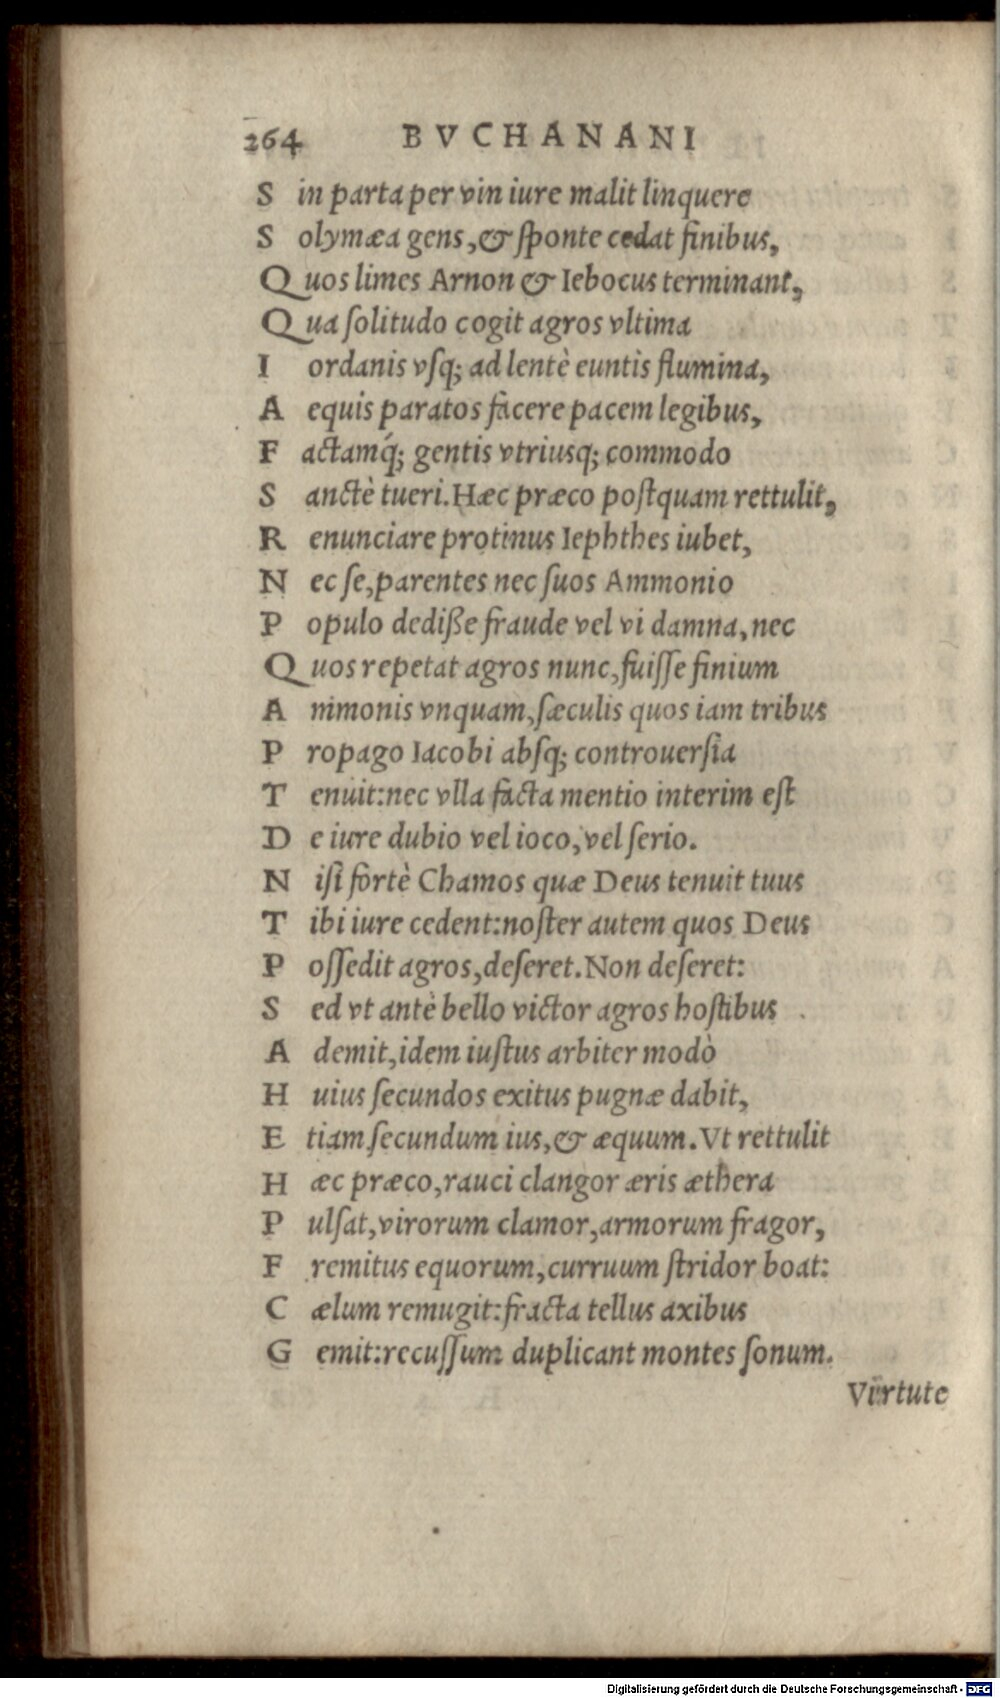 264 BVCHANANI
Sin parta per vin iure malit linquere
Solymæa gens, & ſponte cedat finibus,
Quos limes Arnon & Iebocus terminant,
Qua ſolitudo cogit agros vltima
Iordanis vſq; ad lentè euntis flumina,
Aequis paratos facere pacem legibus,
Factamq́; gentis vtriusq; commodo
Sanctè tueri. Hæc præco poſtquam rettulit,
Renunciare protinus Iephthes iubet,
Nec ſe, parentes nec ſuos Ammonio
Populo dediße fraude vel vi damna, nec
Quos repetat agros nunc, fuiſſe finium
Ammonis vnquam, ſæculis quos iam tribus
Propago Iacobi abſq; controuerſia
Tenuit: nec vlla facta mentio interim eſt
De iure dubio vel ioco, vel ſerio.
Niſi fortè Chamos quæ Deus tenuit tuus
Tibi iure cedent: noſter autem quos Deus
Poſſedit agros, deſeret. Non deſeret:
Sed vt antè bello victor agros hoſtibus
Ademit, idem iuſtus arbiter modò
Huius ſecundos exitus pugnæ dabit,
Etiam ſecundum ius, & æquum. Vt rettulit
Hæc præco, rauci clangor æris æthera
Pulſat, virorum clamor, armorum fragor,
Fremitus equorum, curruum ſtridor boat:
Cælum remugit: fracta tellus axibus
Gemit: recuſſum duplicant montes ſonum.
Virtute
Digitalisierung gefördert durch die Deutsche Forschungsgemeinschaft - DFG